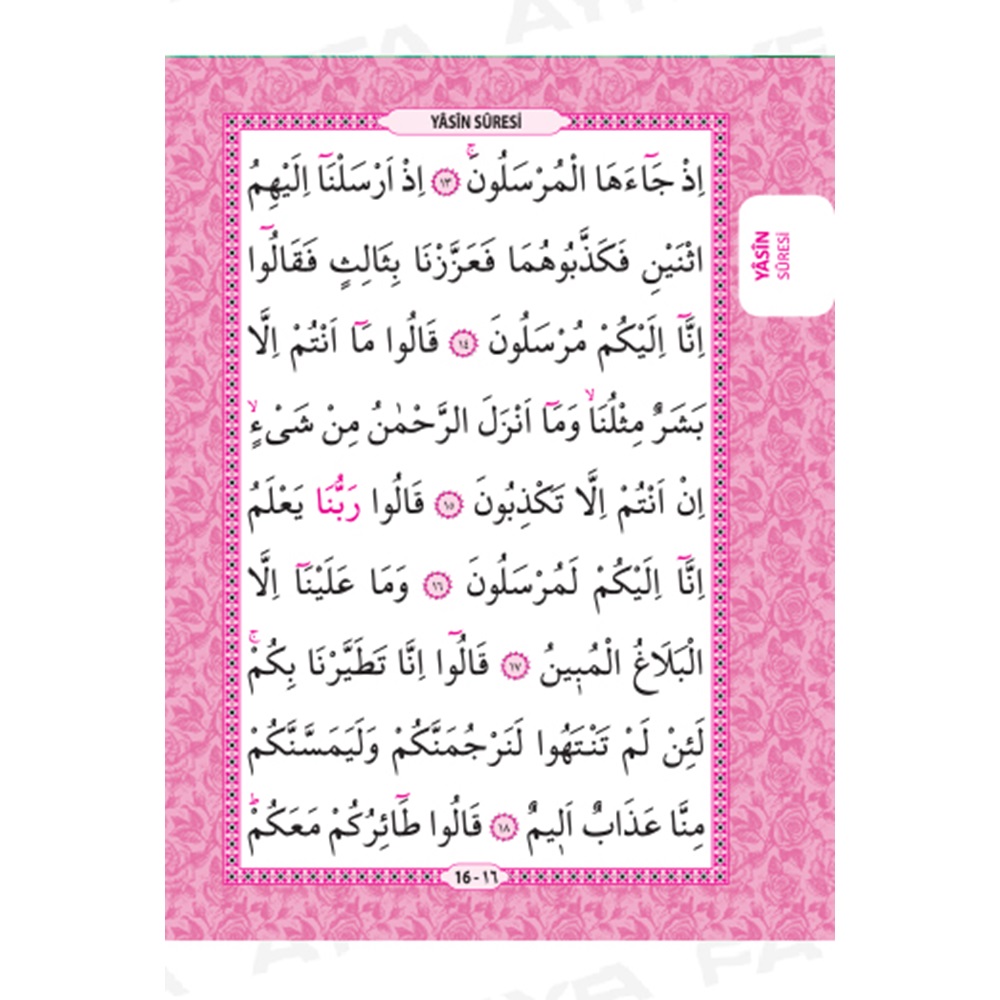 YÂSÎN SÛRESİ
اِذْ جَٓاءَهَا الْمُرْسَلُونَۚ ﴿١٣﴾ اِذْ اَرْسَلْنَٓا اِلَيْهِمُ
اثْنَيْنِ فَكَذَّبُوهُمَا فَعَزَّزْنَا بِثَالِثٍ فَقَالُٓوا
اِنَّٓا اِلَيْكُمْ مُرْسَلُونَ ﴿١٤﴾ قَالُوا مَٓا اَنْتُمْ اِلَّا
بَشَرٌ مِثْلُنَاۙ وَمَٓا اَنْزَلَ الرَّحْمٰنُ مِنْ شَىْءٍۙ
اِنْ اَنْتُمْ اِلَّا تَكْذِبُونَ ﴿١٥﴾ قَالُوا رَبُّنَا يَعْلَمُ
اِنَّٓا اِلَيْكُمْ لَمُرْسَلُونَ ﴿١٦﴾ وَمَا عَلَيْنَٓا اِلَّا
الْبَلَاغُ الْمُبٖينُ ﴿١٧﴾ قَالُٓوا اِنَّا تَطَيَّرْنَا بِكُمْۚ
لَئِنْ لَمْ تَنْتَهُوا لَنَرْجُمَنَّكُمْ وَلَيَمَسَّنَّكُمْ
مِنَّا عَذَابٌ اَلٖيمٌ ﴿١٨﴾ قَالُوا طَٓائِرُكُمْ مَعَكُمْۜ
16 - ١٦
YÂSÎN
SÛRESİ